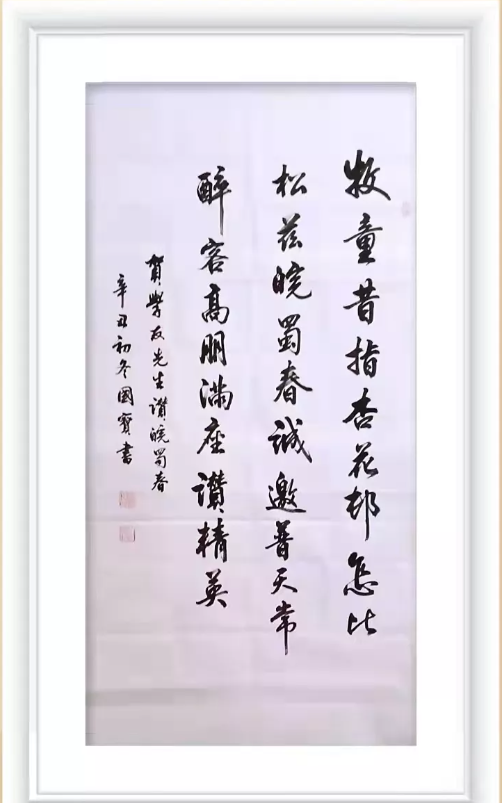 牧童昔指杏花邨怎比
松茲皖蜀春誠邀普天常
醉客高朋滿座讚精英
賀學友先生讚皖蜀春
辛丑初冬國寶書